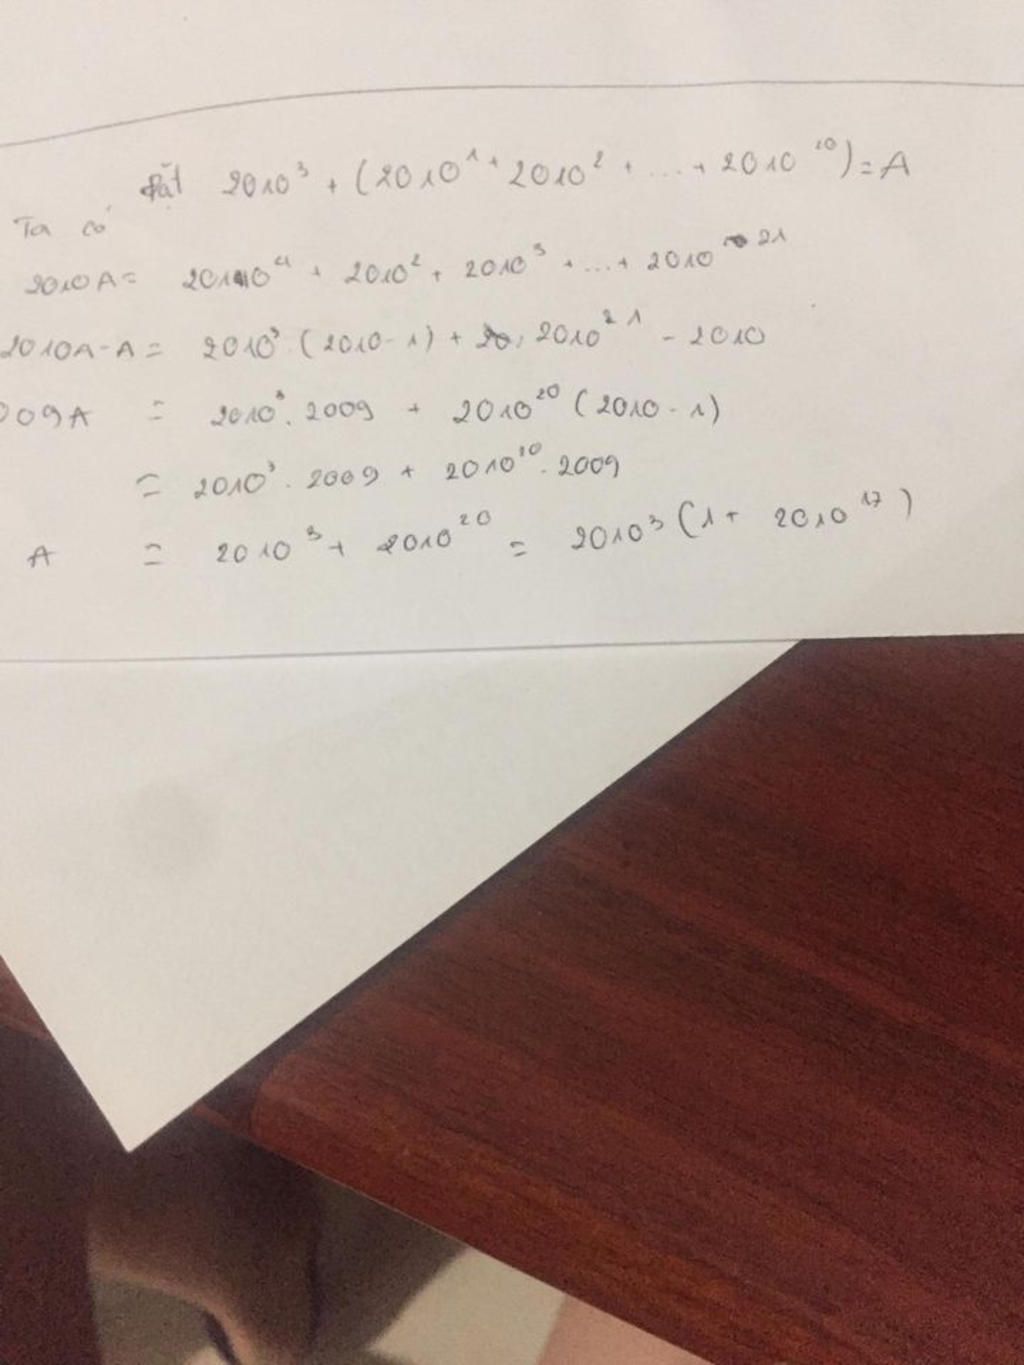 Đặt 2010³ + (2010¹ + 2010² + ... + 2010²⁰) = A
Ta có
2010A = 2010⁴ + 2010² + 2010³ + ... + 2010²¹
2010A - A = 2010³ . (2010 - 1) + 2010²¹ - 2010
009A = 2010³ . 2009 + 2010²⁰ (2010 - 1)
= 2010³ . 2009 + 2010²⁰ . 2009
A = 2010³ + 2010²⁰ = 2010³ (1 + 2010¹⁷)